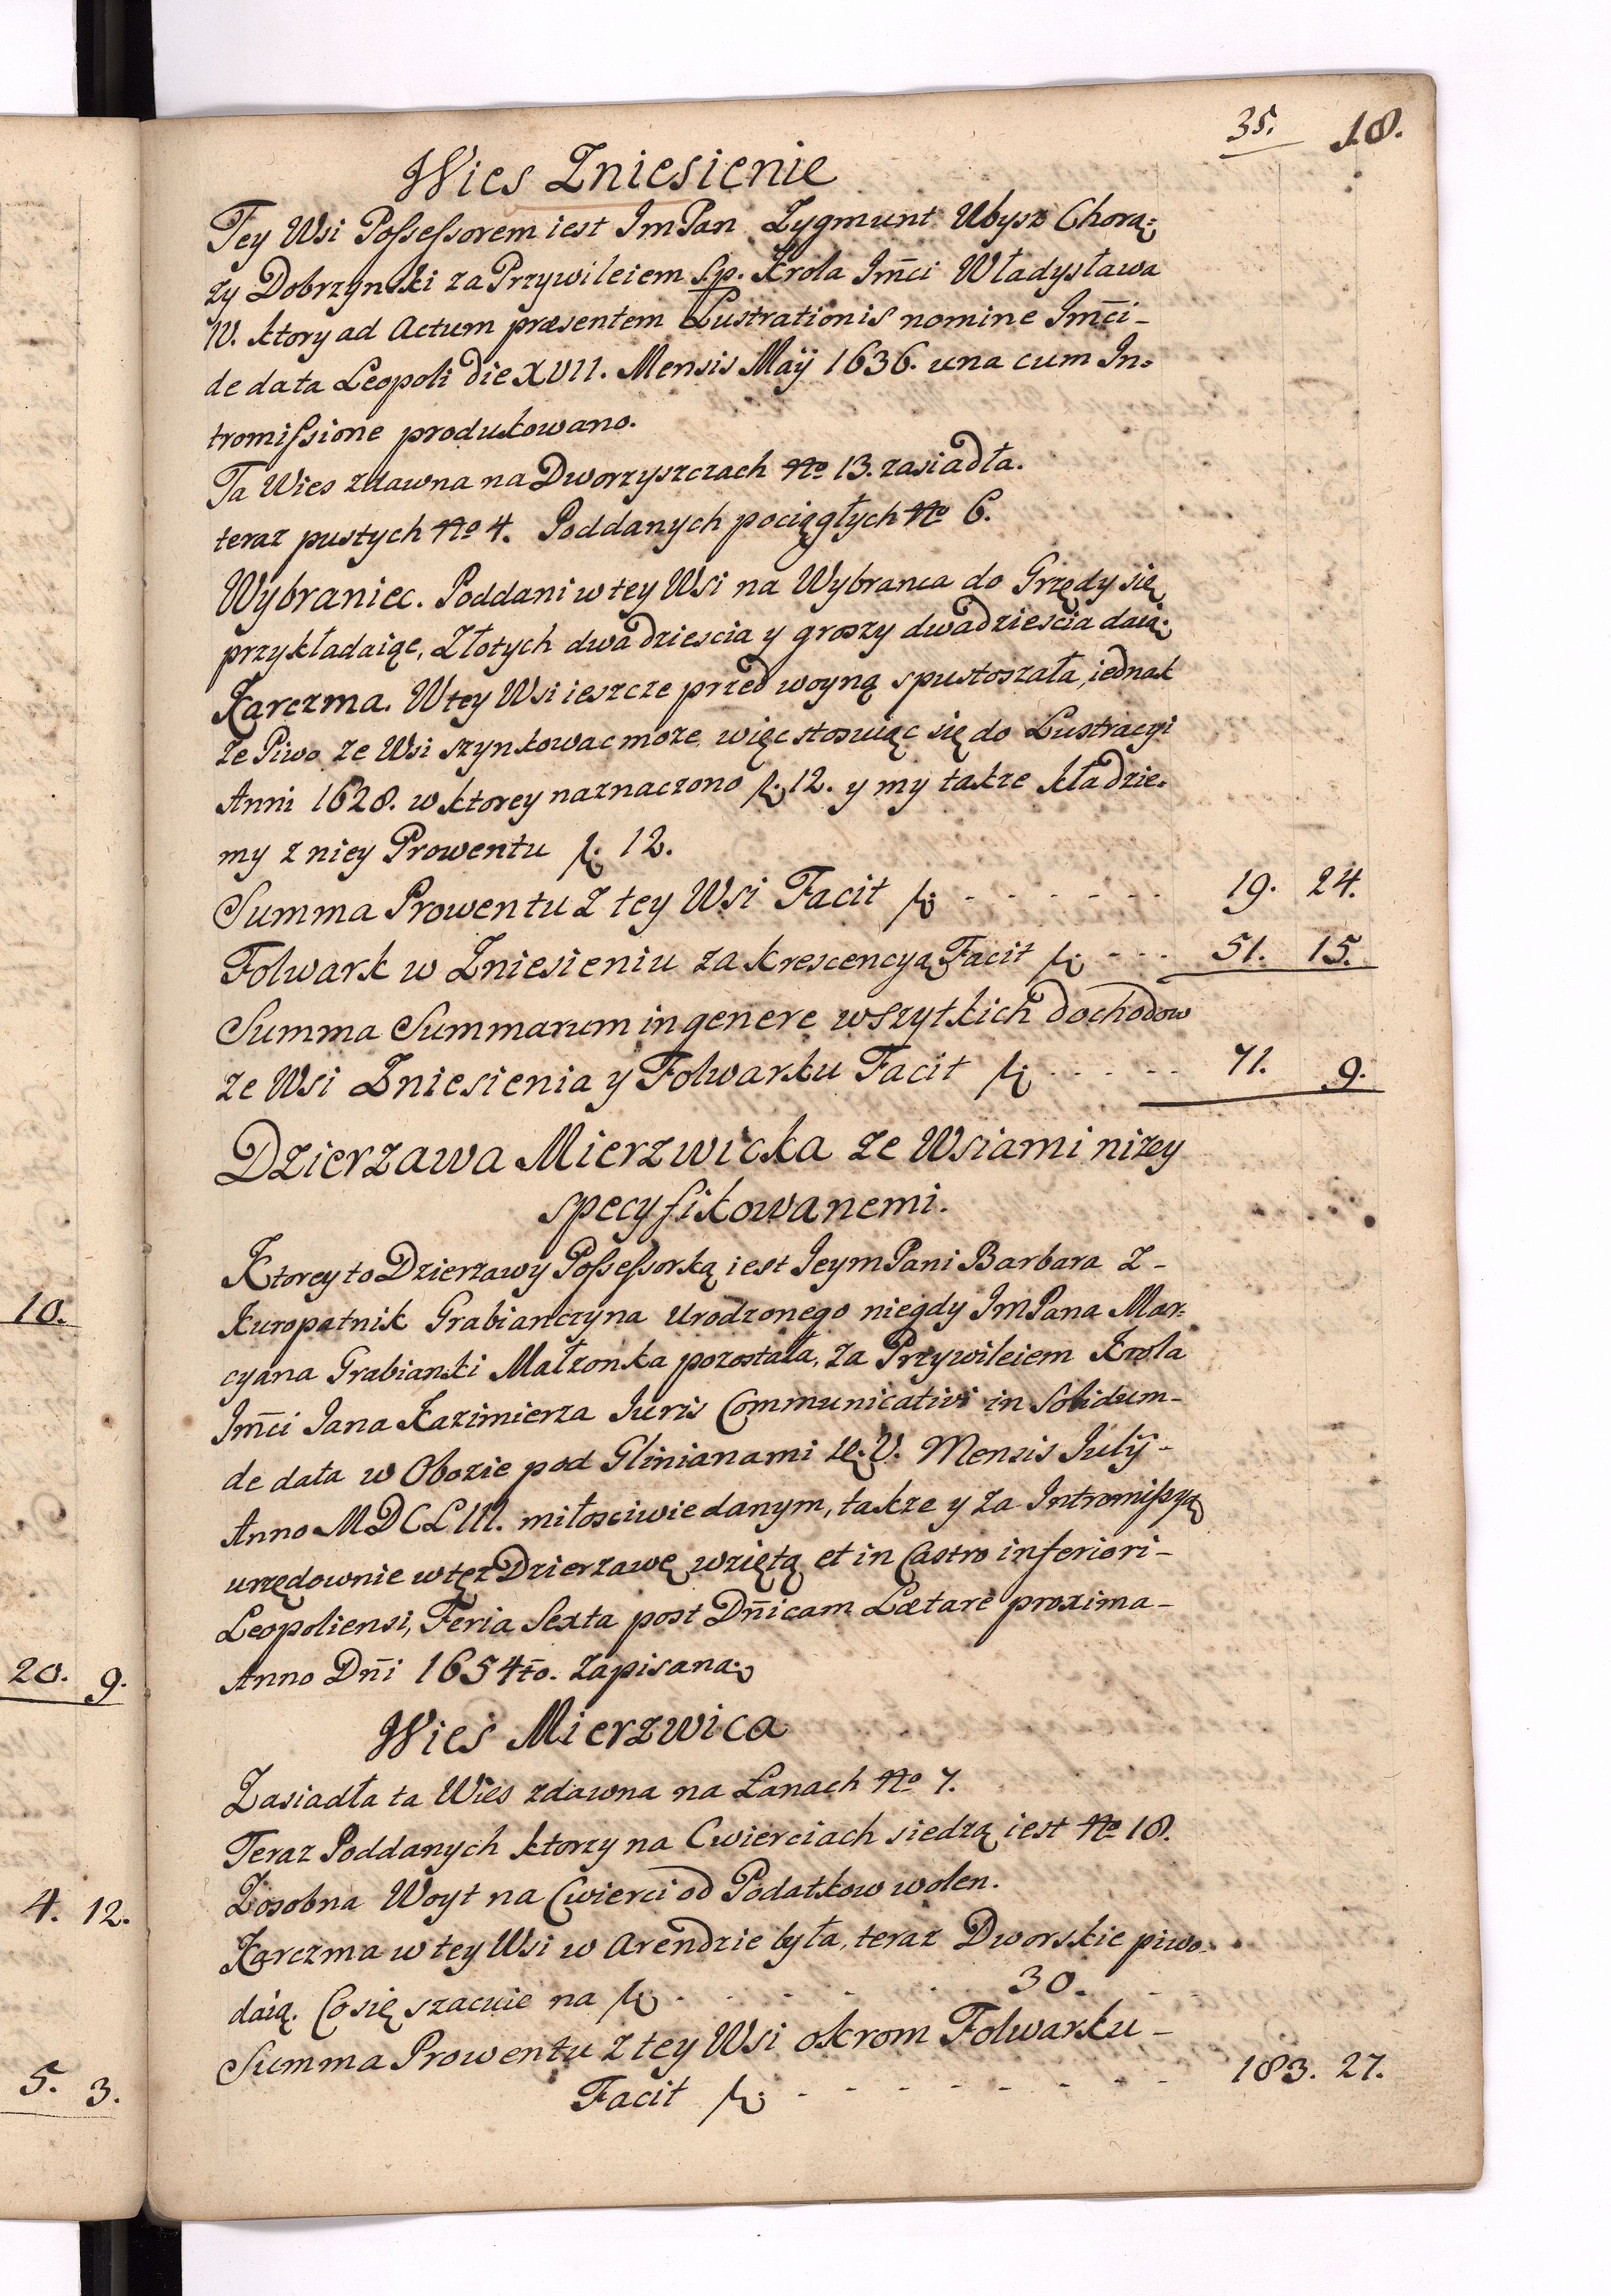 10.
20. 9.
4. 12.
5. 3.
35. 18.
Wies Zniesienie
Tey Wsi Possessorem iest ImPan Zygmunt Ubysz Chorą:
zy Dobrzynski za Przywileiem Sp. Krola Jm̅ci Władysława
IV. ktory ad Actum præsentem Lustrationis nomine Jm̅ci-
de data Leopoli die XVII. Mensis Maÿ 1636. una cum In-
tromissione produkowano.
Ta Wies zdawna na Dworzyszczach No 13. zasiadła.
teraz pustych No 4. Poddanych pociągłych No 6.
Wybraniec. Poddani w tey Wsi na Wybranca do Grzędy się
przykładaiąc, Złotych dwadziescia y groszy dwadziescia daią.
Karczma. W tey Wsi ieszcze przed woyną spustoszała, iednak
ze Piwo ze Wsi szynkowac moze, więc stosuiąc się do Lustracyi
Anni 1628. w ktorey naznaczono f. 12. y my takze kładzie-
my z niey Prowentu f. 12.
Summa Prowentu z tey Wsi Facit f. - - - - - - 19. 24.
Folwark w Zniesieniu za krescencyą Facit f. - - - 51. 15.
Summa Summarum in genere wszytkich dochodow
ze Wsi Zniesienia y Folwarku Facit f. - - - - - 71. 9.
Dzierzawa Mierzwicka ze Wsiami nizey
specyfikowanemi.
Ktorey to Dzierzawy Possessorką iest Jeym Pani Barbara Z-
Kuropatnik Grabianczyna Urodzonego niegdy ImPana Mar:
cyana Grabianki Małzonka pozostała, za Przywileiem Krola
Jm̅ci Jana Kazimierza Juris Communicativi in Solidum-
de data w Obozie pod Glinianami V. Mensis Julÿ-
Anno MDCLIII. miłosciwie danym, takze y za Intromissyą
urzędownie w tęz Dzierzawę wziętą et in Castro inferiori-
Leopoliensi, Feria Sexta post Dn̅icam Lætare proxima-
Anno Dn̅i 1654to. zapisaną.
Wies Mierzwica
Zasiadła ta Wies zdawna na Łanach No 7.
Teraz Poddanych ktorzy na Cwierciach siedzą iest No 18.
Zosobna Woyt na Cwierci od Podatkow wolen.
Karczma w tey Wsi w Arendzie była, teraz Dworskie piwo-
daią. Co się szacuie na f. - - - - - - 30. - -
Summa Prowentu z tey Wsi okrom Folwarku-
Facit f. - - - - - - - - 183. 27.